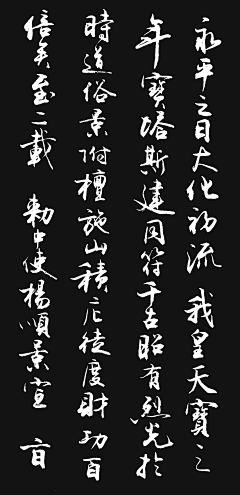 永平之日大化初流 我皇天寶之
年寶塔斯建同符千古昭有烈光於
時道俗景附檀施山積庀徒度財功百
倍矣至二載 敕中使楊順景宣 旨